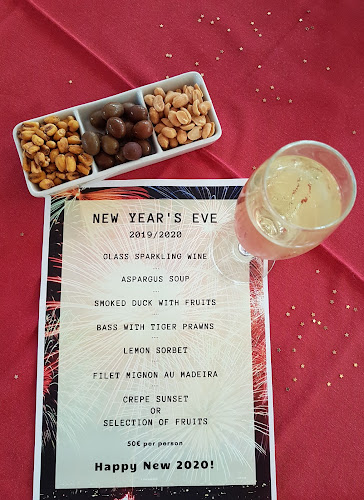 NEW YEAR'S EVE
2019/2020
GLASS SPARKLING WINE
ASPARGUS SOUP
SMOKED DUCK WITH FRUITS
BASS WITH TIGER PRAWNS
LEMON SORBET
FILET MIGNON AU MADEIRA
CREPE SUNSET
OR
SELECTION OF FRUITS
50€ per person
Happy New 2020!